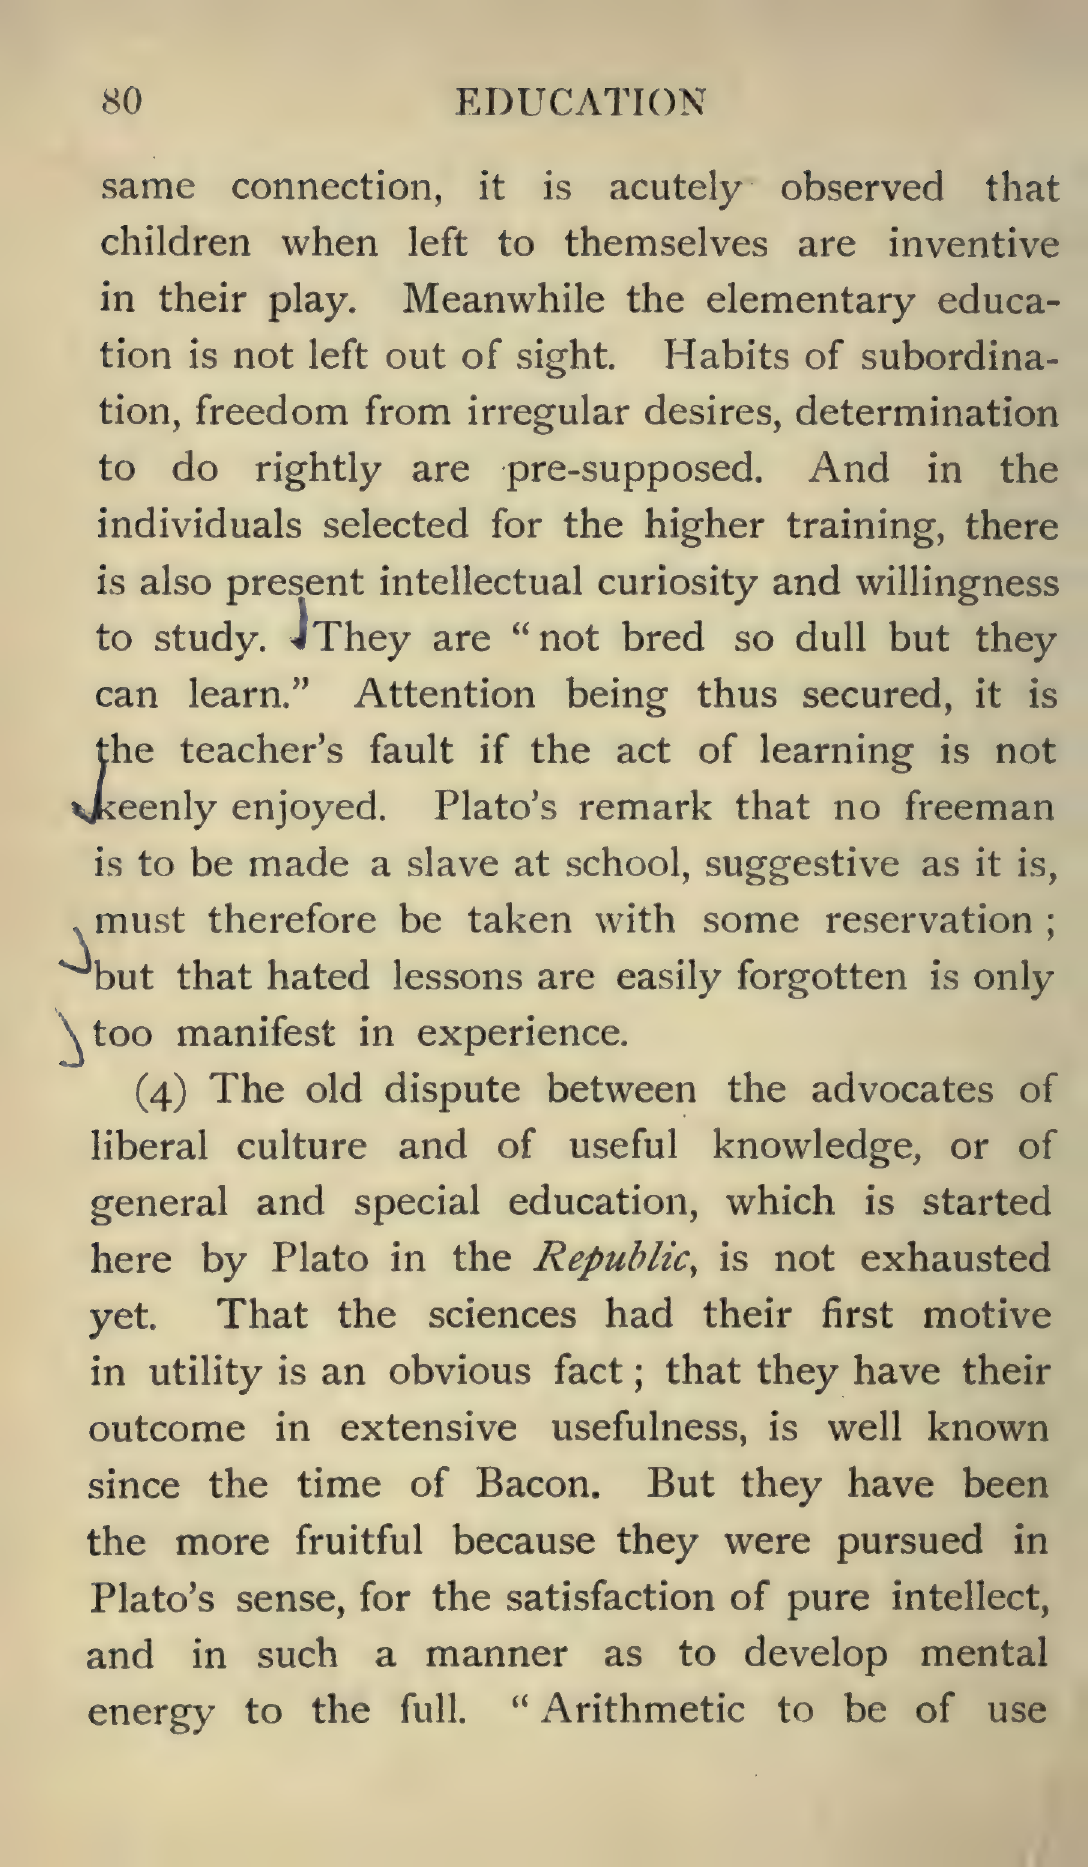 80 EDUCATION
same connection, it is acutely observed that
children when left to themselves are inventive
in their play. Meanwhile the elementary educa-
tion is not left out of sight. Habits of subordina-
tion, freedom from irregular desires, determination
to do rightly are pre-supposed. And in the
individuals selected for the higher training, there
is also present intellectual curiosity and willingness
to study. They are “not bred so dull but they
can learn.” Attention being thus secured, it is
the teacher’s fault if the act of learning is not
keenly enjoyed. Plato’s remark that no freeman
is to be made a slave at school, suggestive as it is,
must therefore be taken with some reservation ;
but that hated lessons are easily forgotten is only
too manifest in experience.
(4) The old dispute between the advocates of
liberal culture and of useful knowledge, or of
general and special education, which is started
here by Plato in the Republic, is not exhausted
yet. That the sciences had their first motive
in utility is an obvious fact ; that they have their
outcome in extensive usefulness, is well known
since the time of Bacon. But they have been
the more fruitful because they were pursued in
Plato’s sense, for the satisfaction of pure intellect,
and in such a manner as to develop mental
energy to the full. “Arithmetic to be of use